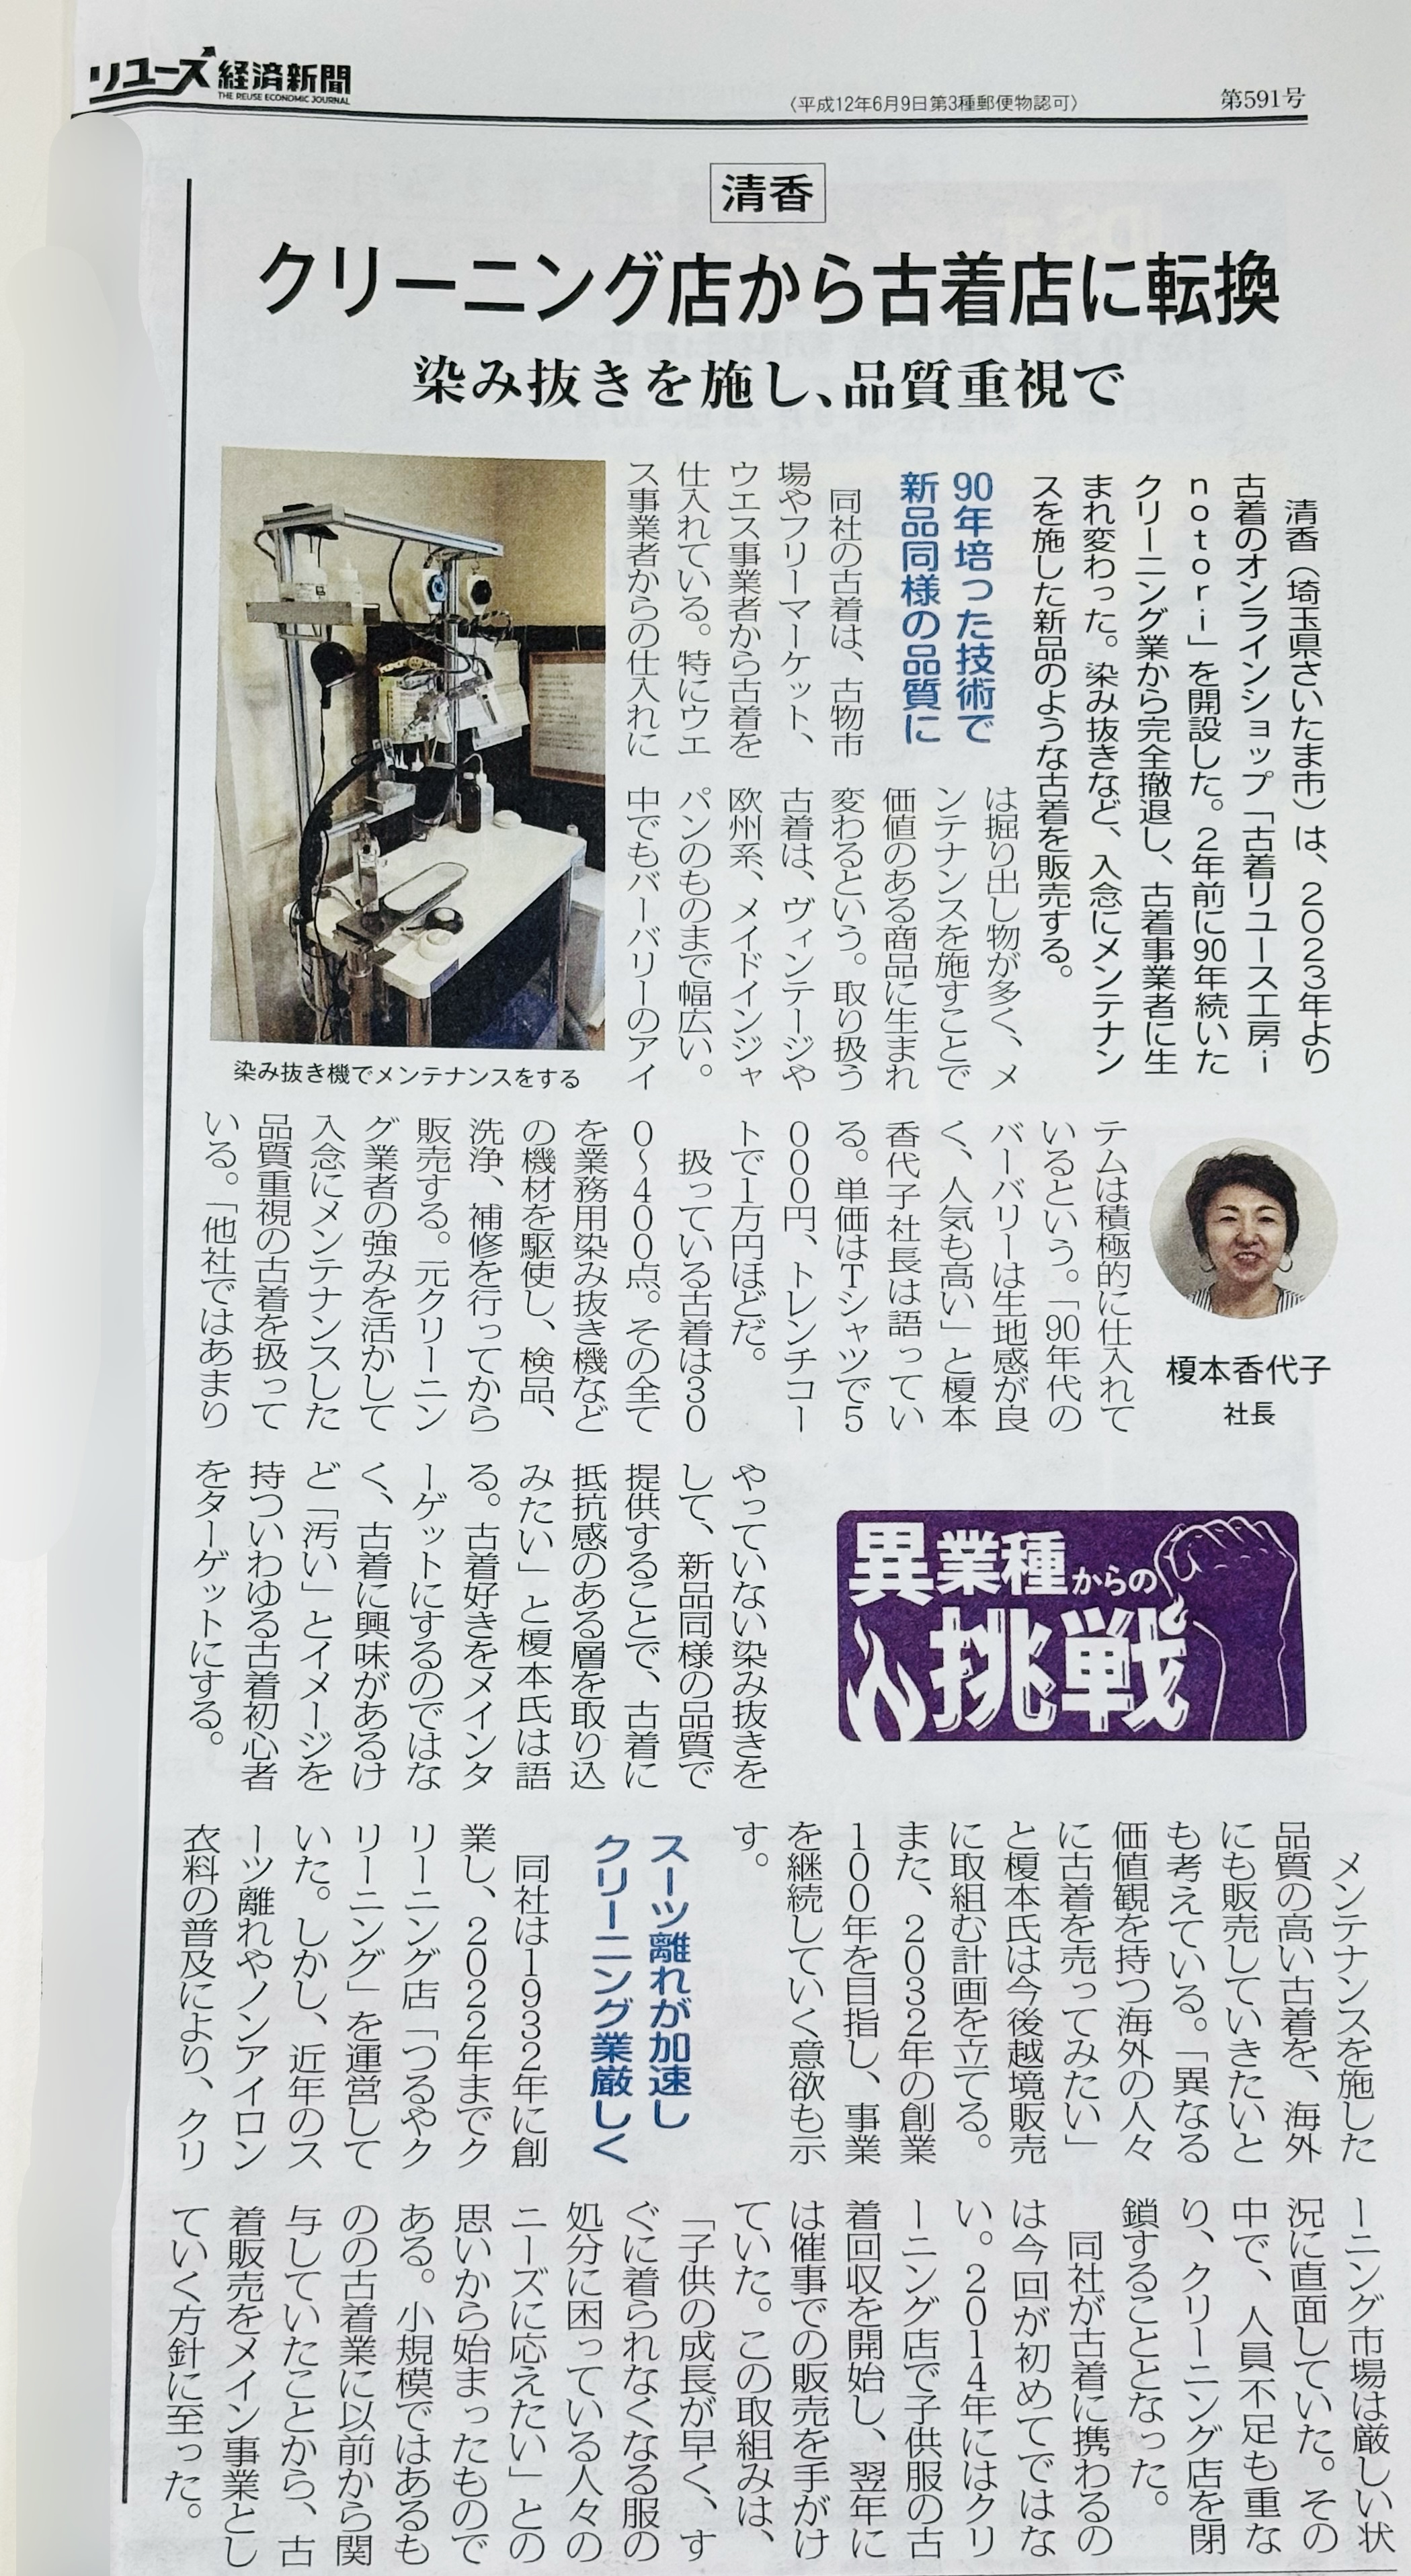 リユース経済新聞
THE REUSE ECONOMIC JOURNAL
〈平成12年6月9日第3種郵便物認可〉
第591号
清香
クリーニング店から古着店に転換
染み抜きを施し、品質重視で
清香（埼玉県さいたま市）は、2023年より
古着のオンラインショップ「古着リユース工房i
notori」を開設した。2年前に90年続いた
クリーニング業から完全撤退し、古着事業者に生
まれ変わった。染み抜きなど、入念にメンテナン
スを施した新品のような古着を販売する。
90年培った技術で
新品同様の品質に
同社の古着は、古物市
場やフリーマーケット、
ウエス事業者から古着を
仕入れている。特にウエ
ス事業者からの仕入れに
は掘り出し物が多く、メ
ンテナンスを施すことで
価値のある商品に生まれ
変わるという。取り扱う
古着は、ヴィンテージや
欧州系、メイドインジャ
パンのものまで幅広い。
中でもバーバリーのアイ
染み抜き機でメンテナンスをする
榎本香代子
社長
テムは積極的に仕入れて
いるという。「90年代の
バーバリーは生地感が良
く、人気も高い」と榎本
香代子社長は語ってい
る。単価はTシャツで5
000円、トレンチコー
トで1万円ほどだ。
扱っている古着は30
0〜400点。その全て
を業務用染み抜き機など
の機材を駆使し、検品、
洗浄、補修を行ってから
販売する。元クリーニン
グ業者の強みを活かして
入念にメンテナンスした
品質重視の古着を扱って
いる。「他社ではあまり
異業種からの
挑戦
やっていない染み抜きを
して、新品同様の品質で
提供することで、古着に
抵抗感のある層を取り込
みたい」と榎本氏は語
る。古着好きをメインタ
ーゲットにするのではな
く、古着に興味があるけ
ど「汚い」とイメージを
持ついわゆる古着初心者
をターゲットにする。
メンテナンスを施した
品質の高い古着を、海外
にも販売していきたいと
も考えている。「異なる
価値観を持つ海外の人々
に古着を売ってみたい」
と榎本氏は今後越境販売
に取組む計画を立てる。
また、2032年の創業
100年を目指し、事業
を継続していく意欲も示
す。
スーツ離れが加速し
クリーニング業厳しく
同社は1932年に創
業し、2022年までク
リーニング店「つるやク
リーニング」を運営して
いた。しかし、近年のス
ーツ離れやノンアイロン
衣料の普及により、クリ
ーニング市場は厳しい状
況に直面していた。その
中で、人員不足も重な
り、クリーニング店を閉
鎖することとなった。
同社が古着に携わるの
は今回が初めてではな
い。2014年にはクリ
ーニング店で子供服の古
着回収を開始し、翌年に
は催事での販売を手がけ
ていた。この取組みは、
「子供の成長が早く、す
ぐに着られなくなる服の
処分に困っている人々の
ニーズに応えたい」との
思いから始まったもので
ある。小規模ではあるも
のの古着業に以前から関
与していたことから、古
着販売をメイン事業とし
ていく方針に至った。